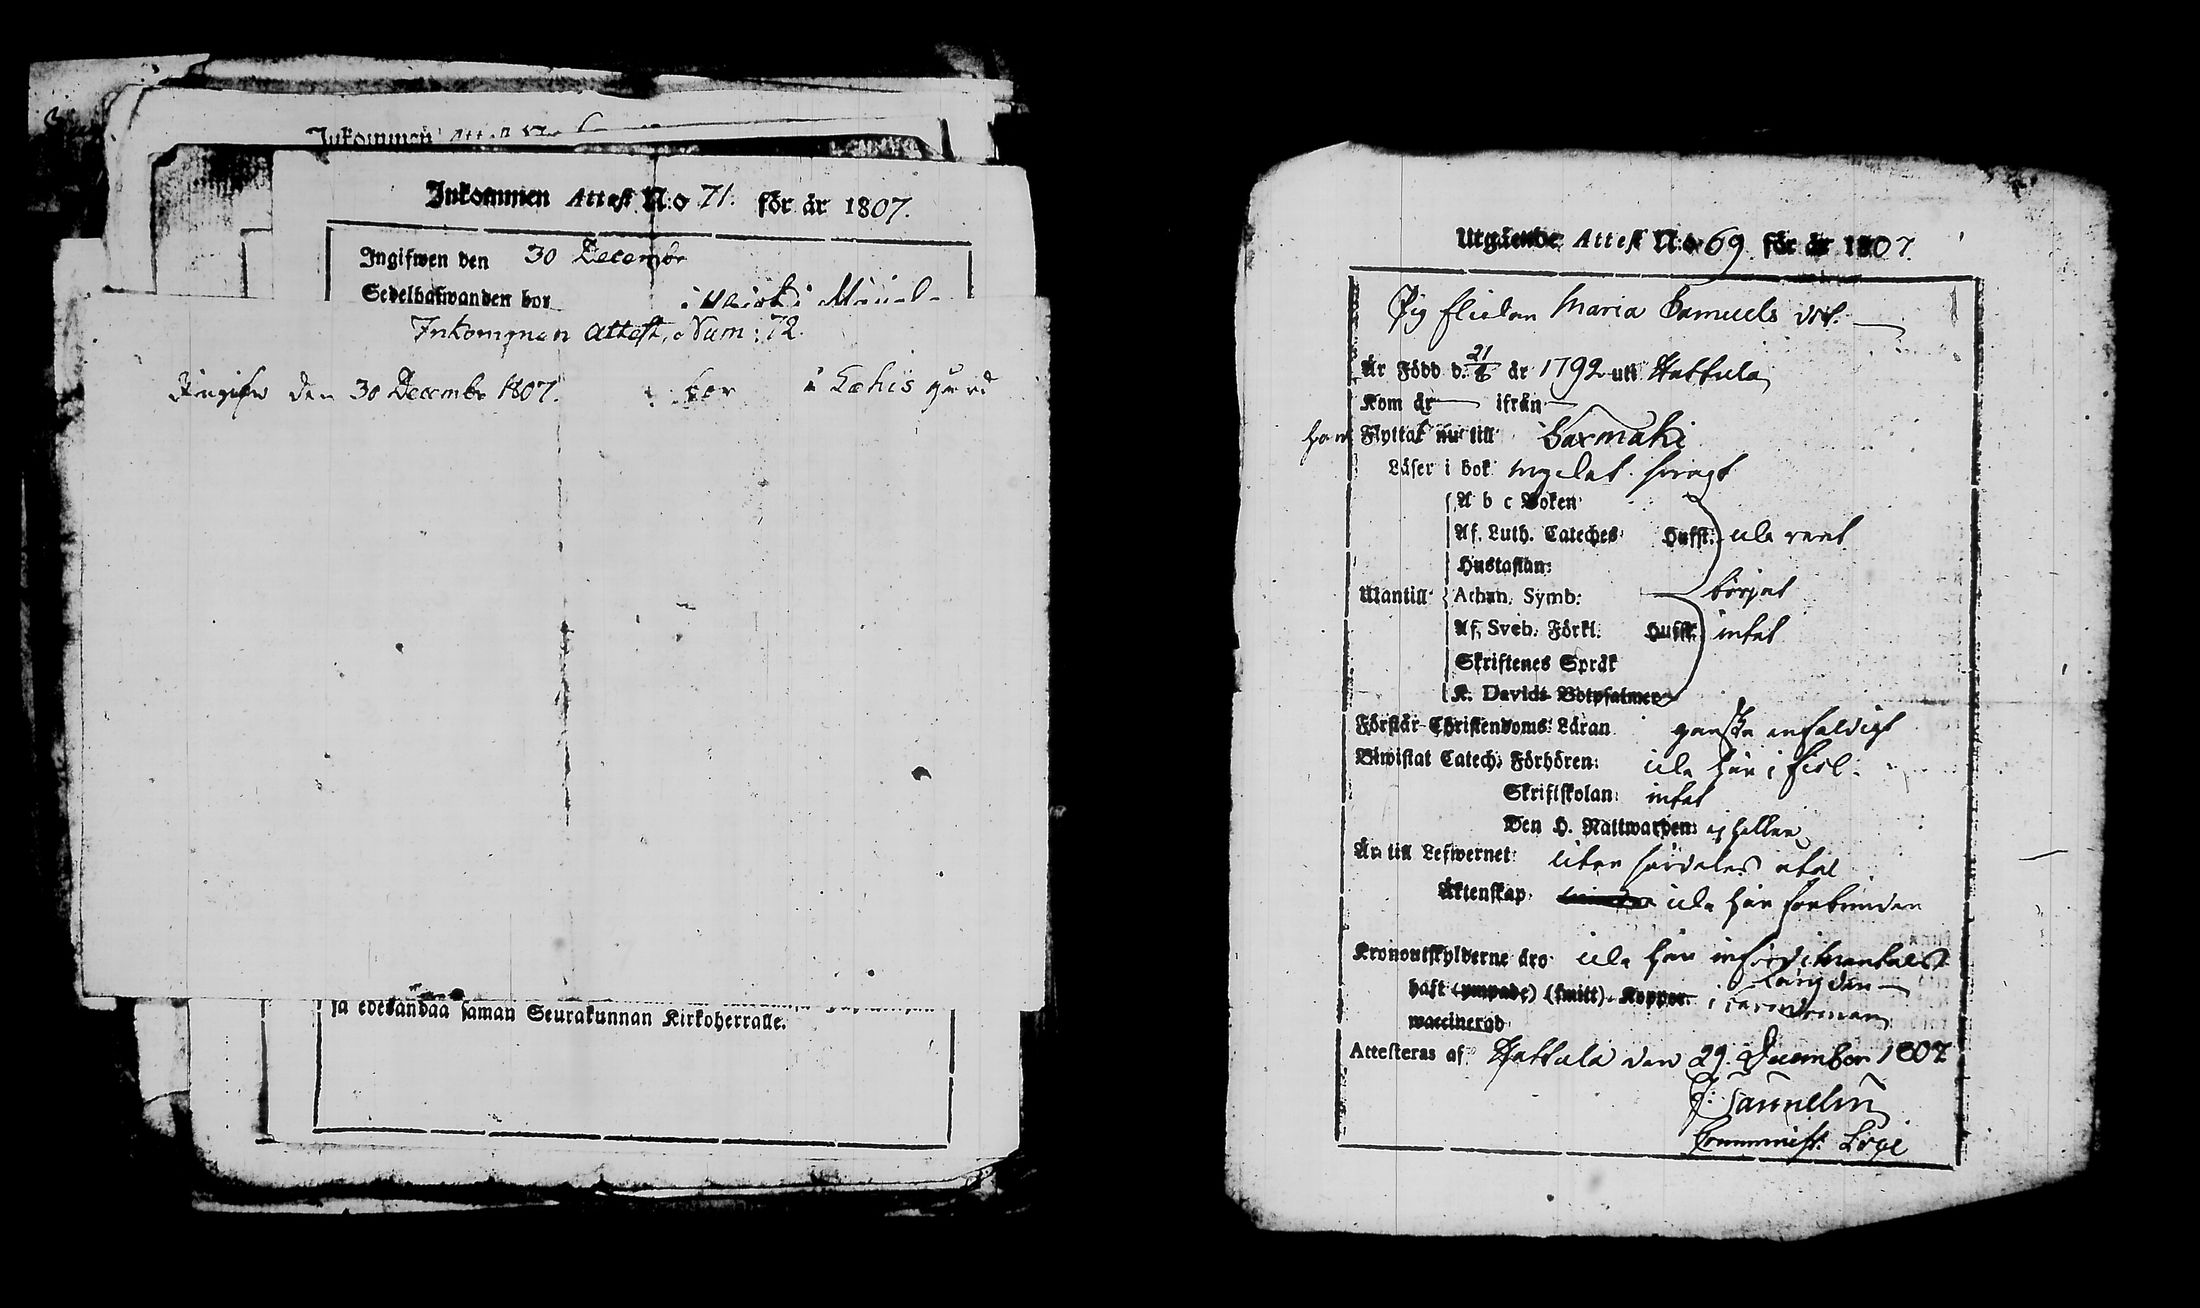 Inkommen Attest N:o
Inkommen Attest N:o 71. för år 1807.
Ingifwen den 30 Decembr
Sedelhafwanden bor i
Inkommen Attest, Num: 72
Ingifv den 30 Decembr 1807. bor i Læhis gård
ja edesandaa saman Seurakunnan Kirkoherralle.
Utgående Attest N:o 69. för år 1807.
Pig flickan Maria Samuels dot.
Är Född d. 21/6 år 1792 uti Hattula
Kom år ifrån
har Flyttat nu till Saxmäki
Läser i bok mycket swagt
A b c Boken
Af. Luth. Cateches Husst: icke rent
Hustaflan:
Utantill Athan. Symb: börjat
Af. Sveb. Förkl. Husst: intet
Skriftenes Språk
K. Davids Botpsalmer
Förstår Christendoms Läran ganska enfaldigt
Biwistat Catech. Förhören: icke här i
Skriftskolan: intet
Den H. Nattwarden: ej heller
Är till Lefwernet: utan särdeles åtal
Äktenskap: icke här förbunden
Kronoutskylderne äro icke här införd i Mantals
Längden
haft (ympade) (smitt) Koppor. i
waccinerad
Attesteras af Hattula den 29. December 1807